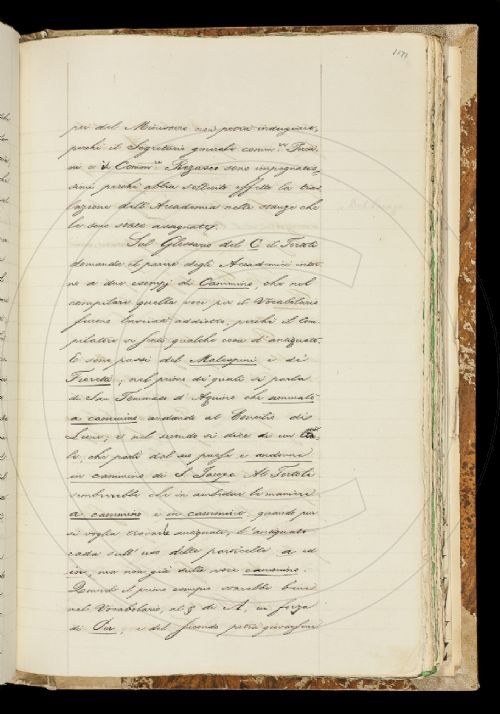 per del Ministero non potrà indugiare,
perchè il Segretario generale comm.
ni e il Comm. Rezasco sono impegnatis-
simi perchè abbia sollecito effetto la tras-
lazione dell'Accademia nelle stanze che
le sono state assegnate.
Sul Glossario del C il Tortoli
domanda il parere degli Accademici intor-
no a due esempj di Cammino, che nel
compilare quella voce per il Vocabolario
furono lasciati addietro, perchè il Com-
pilatore vi sentì qualche cosa d'antiquato.
E sono passi del Malespini e di
Fioretti, nel primo de' quali si parla
di San Tommaso d'Aquino che ammalò
a cammino andando al Concilio di
Lione, e nel secondo si dice di un
le, che partì dal suo paese e andonne
in cammino di S. Jacopo. Al Tortoli
sembrerebbe che in ambedue le maniere
a cammino e in cammino, quando pur
si voglia trovarvi antiquato, l'antiquato
cada sull'uso della particella a ed
in, ma non già sulla voce cammino.
Quindi il primo esempio sarebbe bene
nel Vocabolario, al § di A, in forza
di Da, e del secondo potrà giovarsene